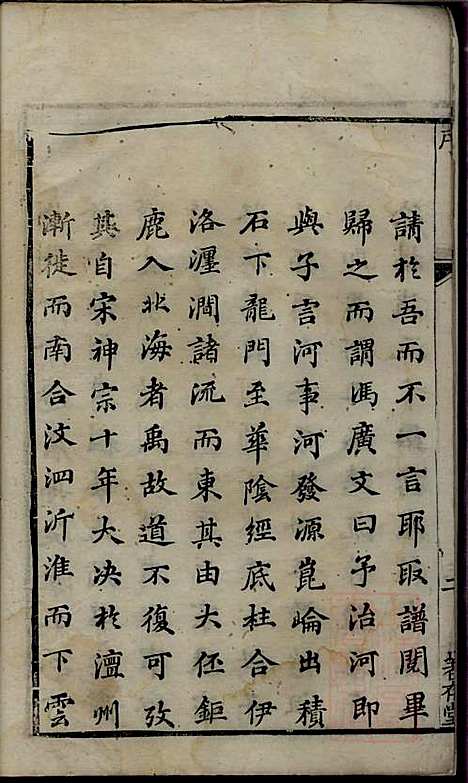 請於吾而不一言耶取譜閱畢
歸之而謂馮廣文曰予治河即
與子言河事河發源崑崙出積
石下龍門至華陰經底柱合伊
洛瀍澗諸流而東其由大伾鉅
鹿入北海者禹故道不復可攷
其自宋神宗十年大决於澶州
漸徙而南合汶泗沂淮而下雲
序
二